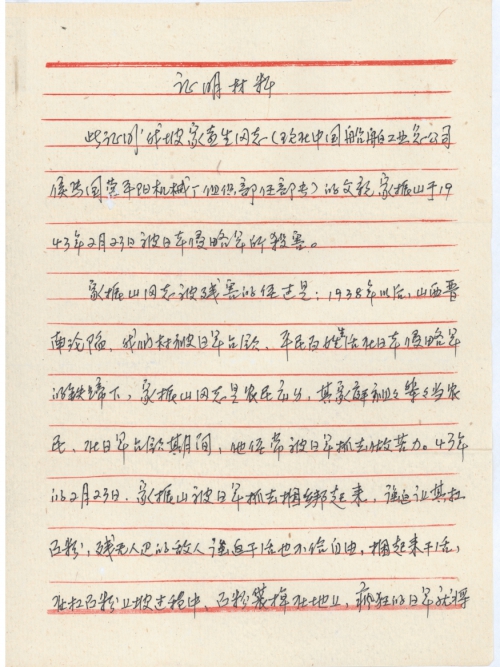 证明材料
此证明我坡家重生同志(现在中国船舶工业总公司
侯马国营平阳机械厂组织部任部长)的父亲家振山于19
43年2月23日被日本侵略军所杀害。
家振山同志被残害的经过是:1938年以后,山西晋
南沦陷,我们村被日军占领,平民百姓生活在日本侵略军
的铁蹄下,家振山同志是农民成分,其家庭祖祖辈辈当农
民,在日军占领其间,他经常被日军抓去做苦力。43年
的2月23日,家振山被日军抓去捆绑起来,强迫让其扛
面粉,残无人道的敌人强迫干活也不给自由,捆起来干活,
在扛面粉上坡过程中,面粉袋掉在地上,疯狂的日军就将